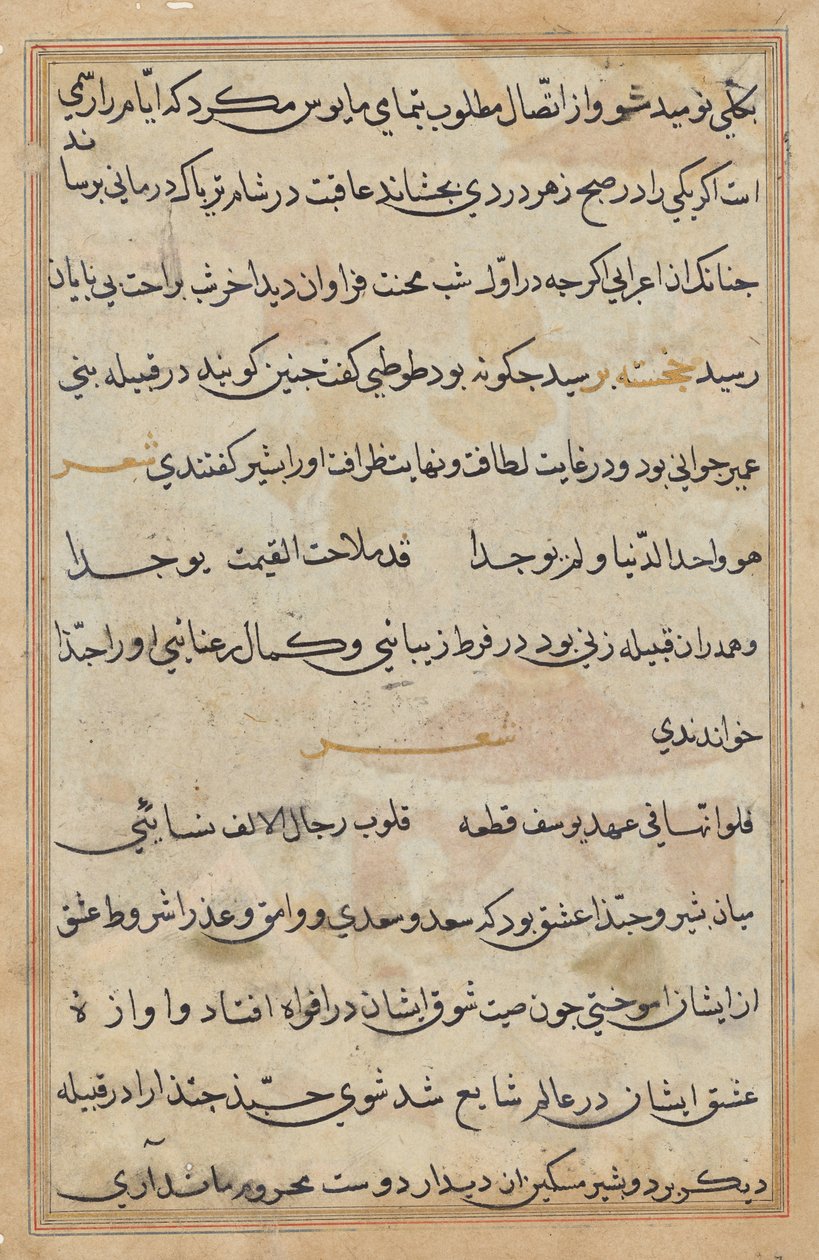 بکلی نومید مشو و از اتّصال مطلوب بتمامی مایوس مکرد که ایّام را رسمی
است اکر یکی را در صبح زهر دردی بچشاند عاقبت در شام تریاک درمانی برساند
جنانک ان اعرابی اکرجه در اوّل شب محنت فراوان دید اخر شب براحت بی بایان
رسید خجسته برسید جکونه بود طوطی کفت جنین کویند در قبیله بنی
عمیر جوانی بود و در غایت لطافت و نهایت ظرافت او را بشیر کفتندی شعر
هو واحد الدّنیا و لم یوجدا قد ملاحت القیمت یوجدا
و همدران قبیله زنی بود در فرط زیبائی و کمال رعنائی او را جبّذا
خواندندی شعر
فلو انّها فی عهد یوسف قطعه قلوب رجال لا الف نسائی
میان بشیر و حبّذا عشق بود که سعد و سعدی و وامق و عذرا شروط عشق
از ایشان اموختی جون صیت شوق ایشان در افواه افتاد و اوازه
عشق ایشان در عالم شایع شد شوی حبّذ را در قبیله
دیکر برد و بشیر مسکین ان دیدار دوست محروم ماند آری